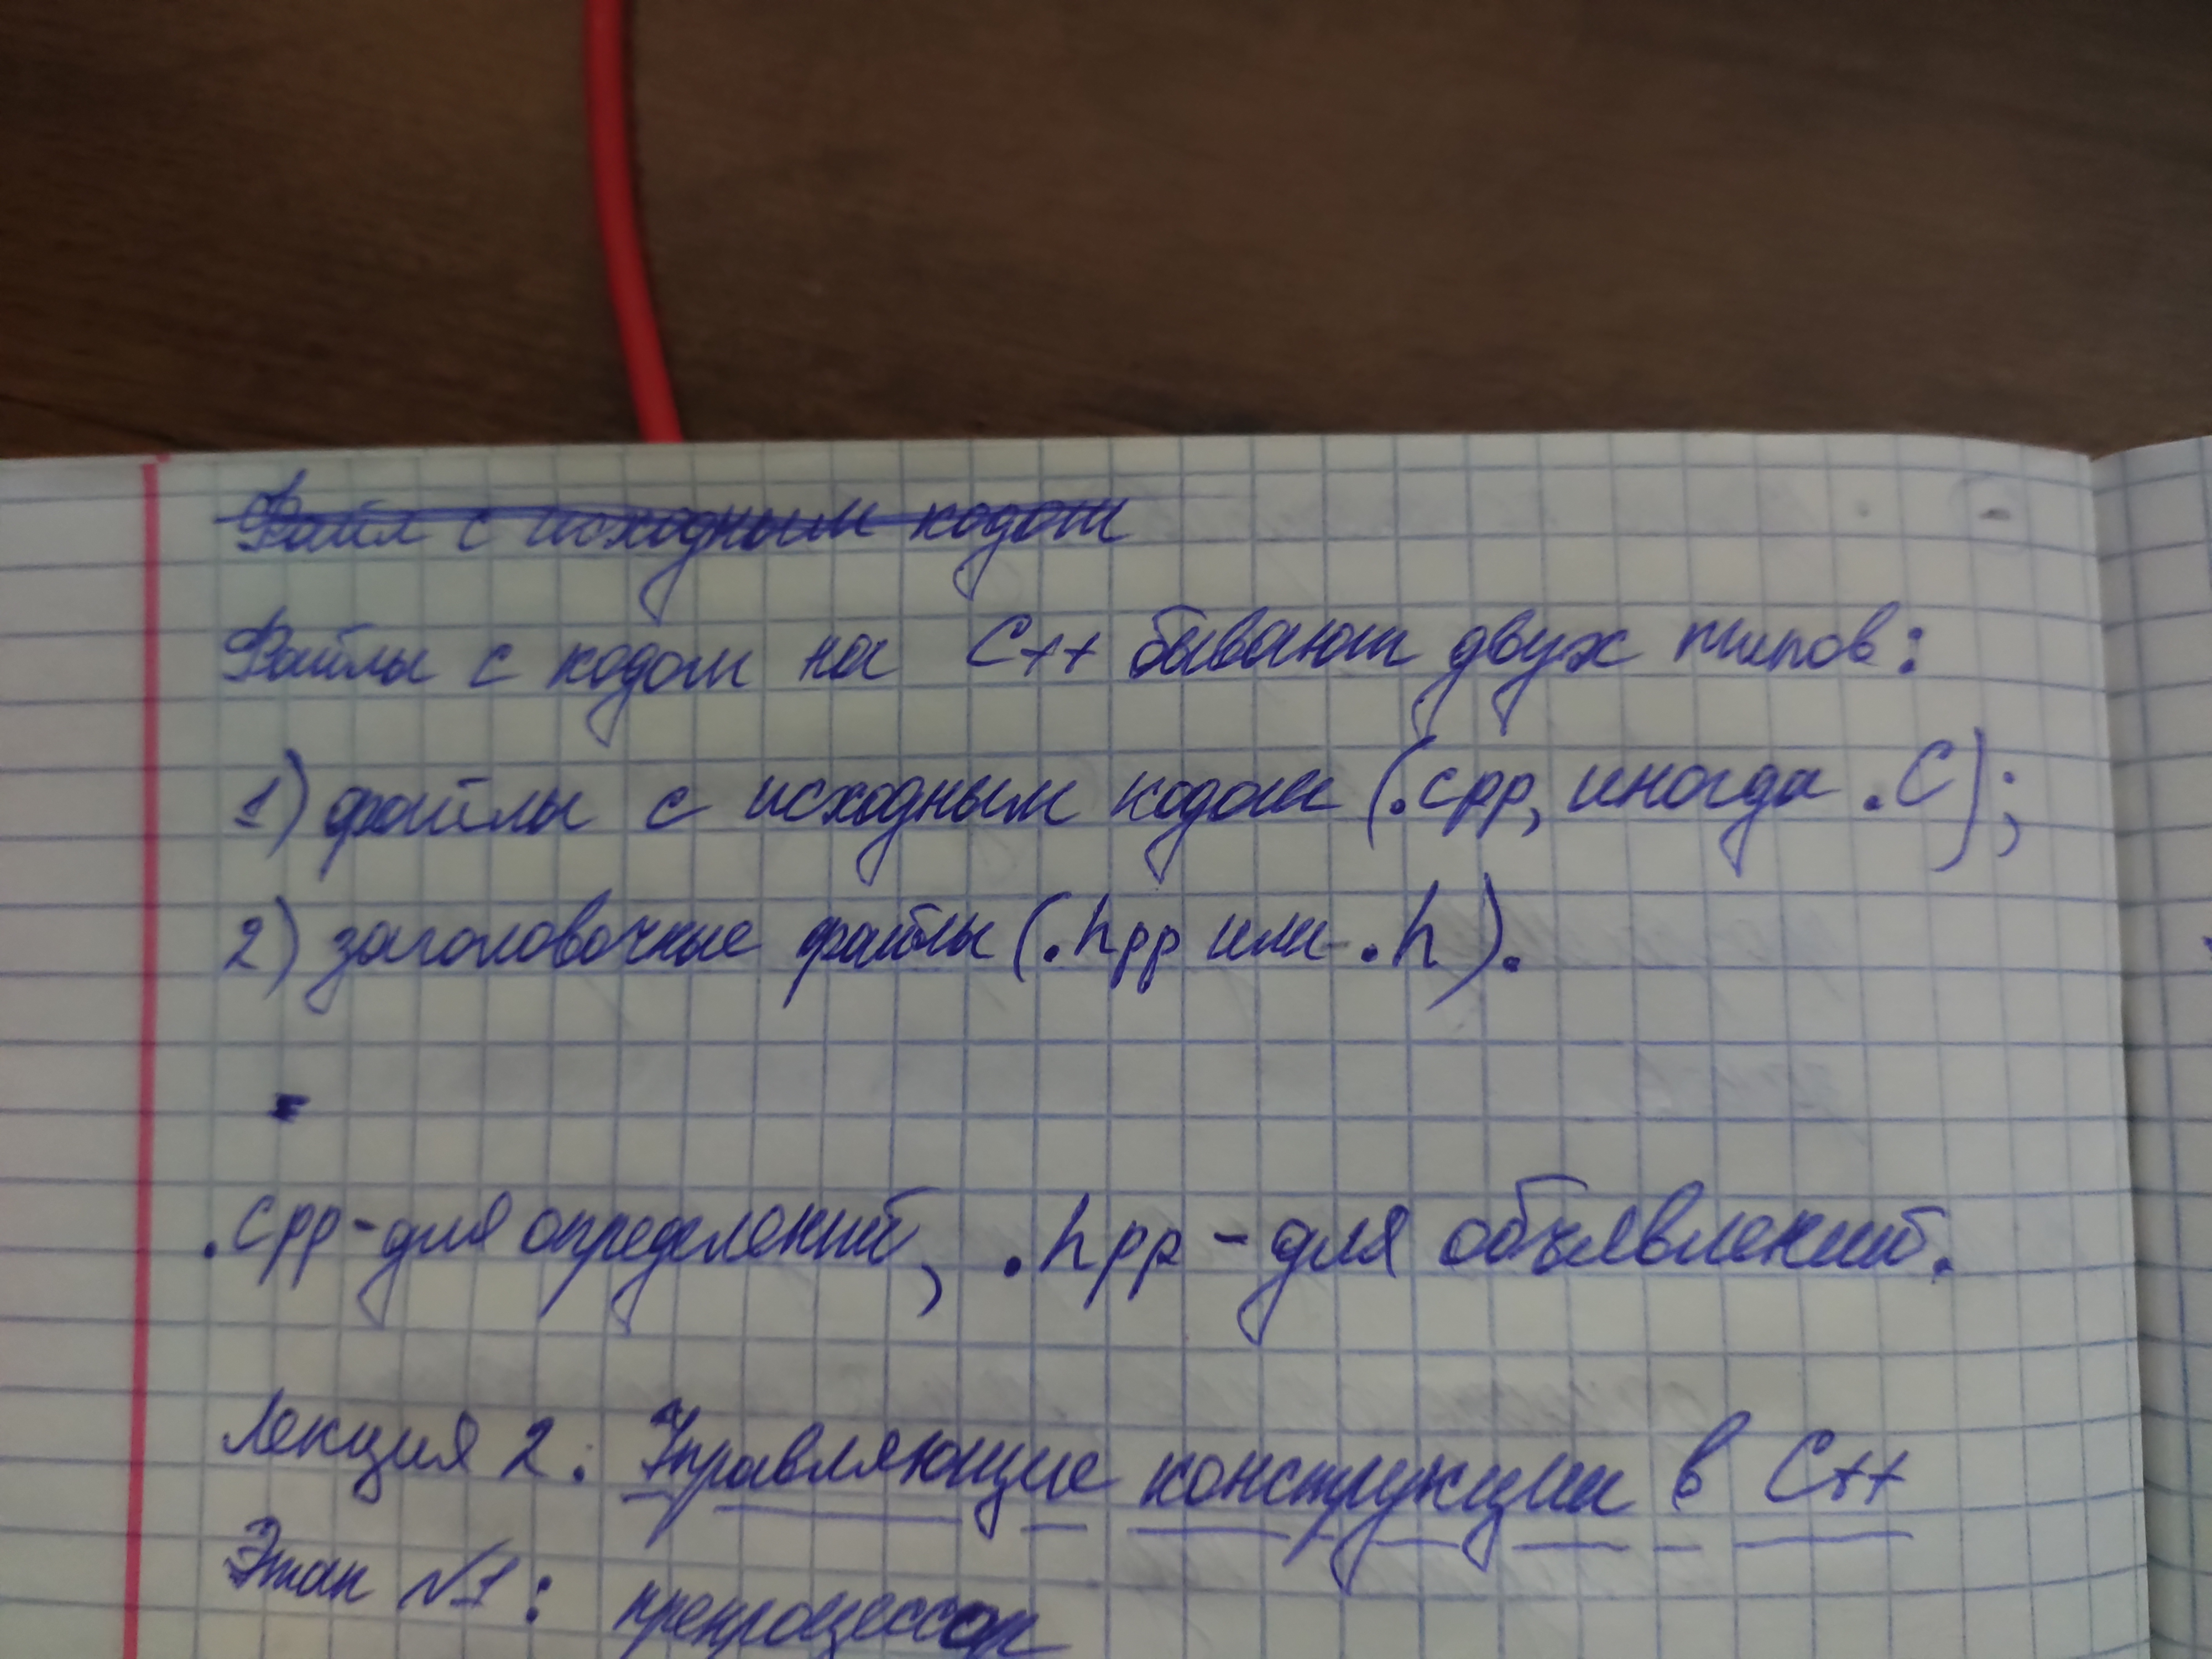 Файл с исходным кодом
Файлы с кодом на C++ бывают двух типов:
1) файлы с исходным кодом (.cpp, иногда .C);
2) заголовочные файлы (.hpp или .h).
.cpp - для определений, .hpp - для объявлений.
Лекция 2: Управляющие конструкции в C++
Этап №1: препроцессор